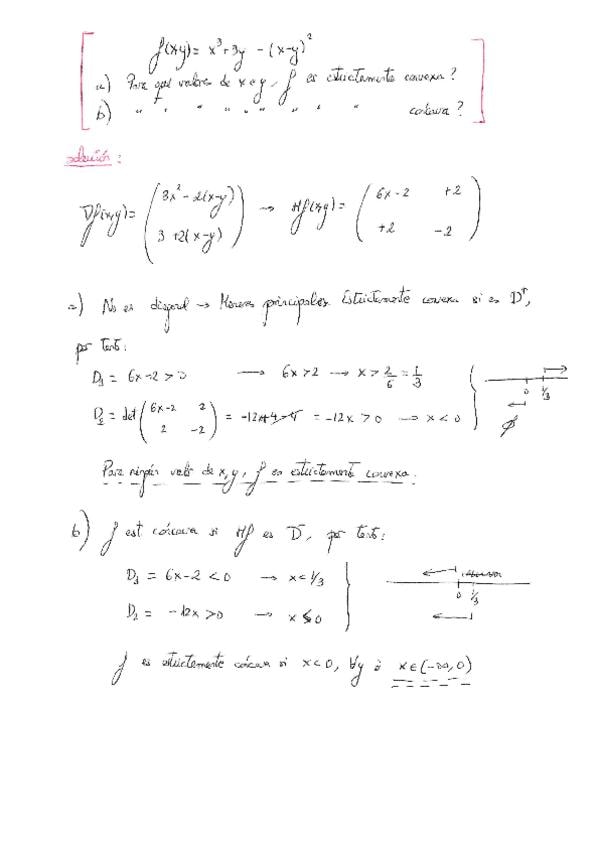 f(x,y) = x³+3y - (x-y)²
a) Para qué valores de x e y, f es estrictamente convexa?
b) " " " " " " " " " cóncava?
solución:
∇f(x,y) = (3x² - 2(x-y) ; 3 + 2(x-y)) → Hf(x,y) = (6x-2 +2 ; +2 -2)
a) No es diagonal → Menores principales. Estrictamente convexa si es D⁺,
por tanto:
D₁ = 6x-2 > 0 → 6x > 2 → x > 2/6 = 1/3
0 1/3
D₂ = det (6x-2 2 ; 2 -2) = -12x+4-4 = -12x > 0 → x < 0
∅
Para ningún valor de x, y, f es estrictamente convexa.
b) f est cóncava si Hf es D⁻, por tanto:
D₁ = 6x-2 < 0 → x < 1/3
0 1/3
D₂ = -12x > 0 → x < 0
f es estrictamente cóncava si x < 0, ∀y ó x ∈ (-∞, 0)